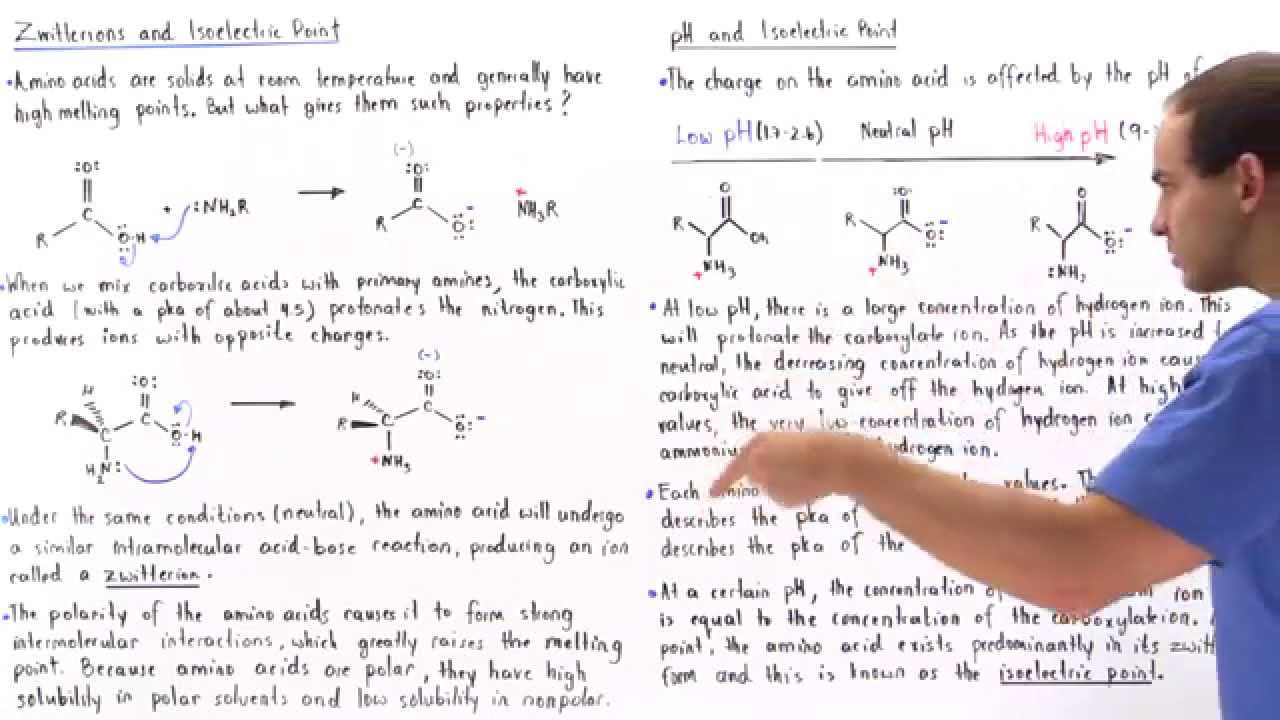 Zwitterions and Isoelectric Point
• Amino acids are solids at room temperature and generally have
high melting points. But what gives them such properties?
(-)
:O:
C
R
O-H
+ :NH2R
:O:
C
R
O: -
+
NH3R
• When we mix carboxilic acids with primary amines, the carboxylic
acid (with a pka of about 4.5) protonates the nitrogen. This
produces ions with opposite charges.
(-)
H
:O:
R
C
C
O-H
H2N:
H
:O:
R
C
C
O: -
+NH3
• Under the same conditions (neutral), the amino acid will undergo
a similar intramolecular acid-base reaction, producing an ion
called a zwitterion.
• The polarity of the amino acids causes it to form strong
intermolecular interactions, which greatly raises the melting
point. Because amino acids are polar, they have high
solubility in polar solvents and low solubility in nonpolar.
pH and Isoelectric Point
• The charge on the amino acid is affected by the pH of
Low pH (1.7-2.6) Neutral pH High pH (9-
O
R
OH
+NH3
:O:
R
O: -
+NH3
O
R
O: -
:NH2
• At low pH, there is a large concentration of hydrogen ion. This
will protonate the carboxylate ion. As the pH is increased
neutral, the decreasing concentration of hydrogen ion
carboxylic acid to give off the hydogen ion. At high
values, the very low concentration of hydrogen ion
ion.
• Each amino values.
describes the pka of
describes the pka of the
• At a certain pH, the concentration of ion
is equal to the concentration of the carboxylateion.
point, the amino acid exists predominantly in its
form and this is known as the isoelectric point.